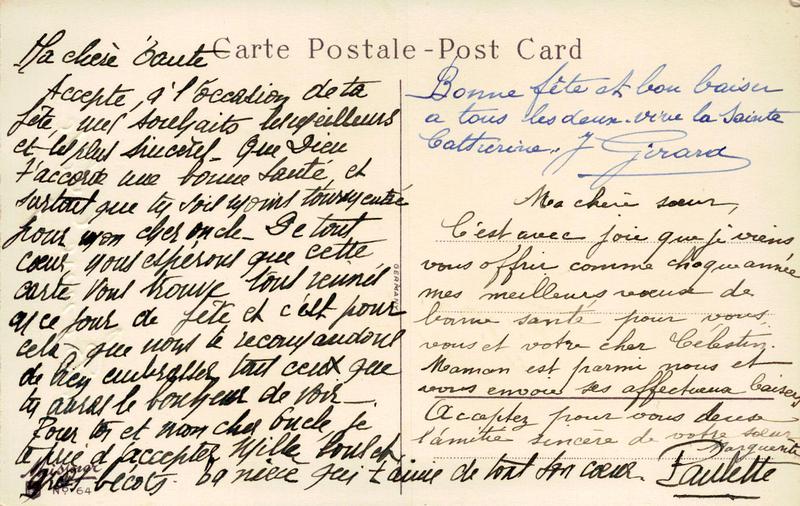 Carte Postale - Post Card
Ma chère tante
Accepte, à l'occasion de ta
fête, mes souhaits les meilleurs
et les plus sincères - que Dieu
t'accorde une bonne Santé, et
surtout que tu sois moins tourmentée
pour mon cher oncle - De tout
cœur, nous espérons que cette
carte vous trouve tous réunis
en ce jour de fête et c'est pour
cela que nous te recommandons
de bien embrasser tous ceux que
tu auras le bonheur de voir -
Pour toi et mon cher Oncle, je
te prie d'accepter Mille bons et
gros bécots. Ta nièce qui t'aime de tout son cœur Paulette
Bonne fête et bon baiser
a tous les deux. vive la Sainte
Catherine. J Girard
Ma chère sœur,
C'est avec joie que je viens
vous offrir comme chaque année
mes meilleurs vœux de
bonne santé pour vous
vous et votre cher Célestin.
Maman est parmi nous et
vous envoie ses affectueux baisers
Acceptez pour vous deux
l'amitié sincère de votre sœur
Marguerite
GERMANY
No. 64